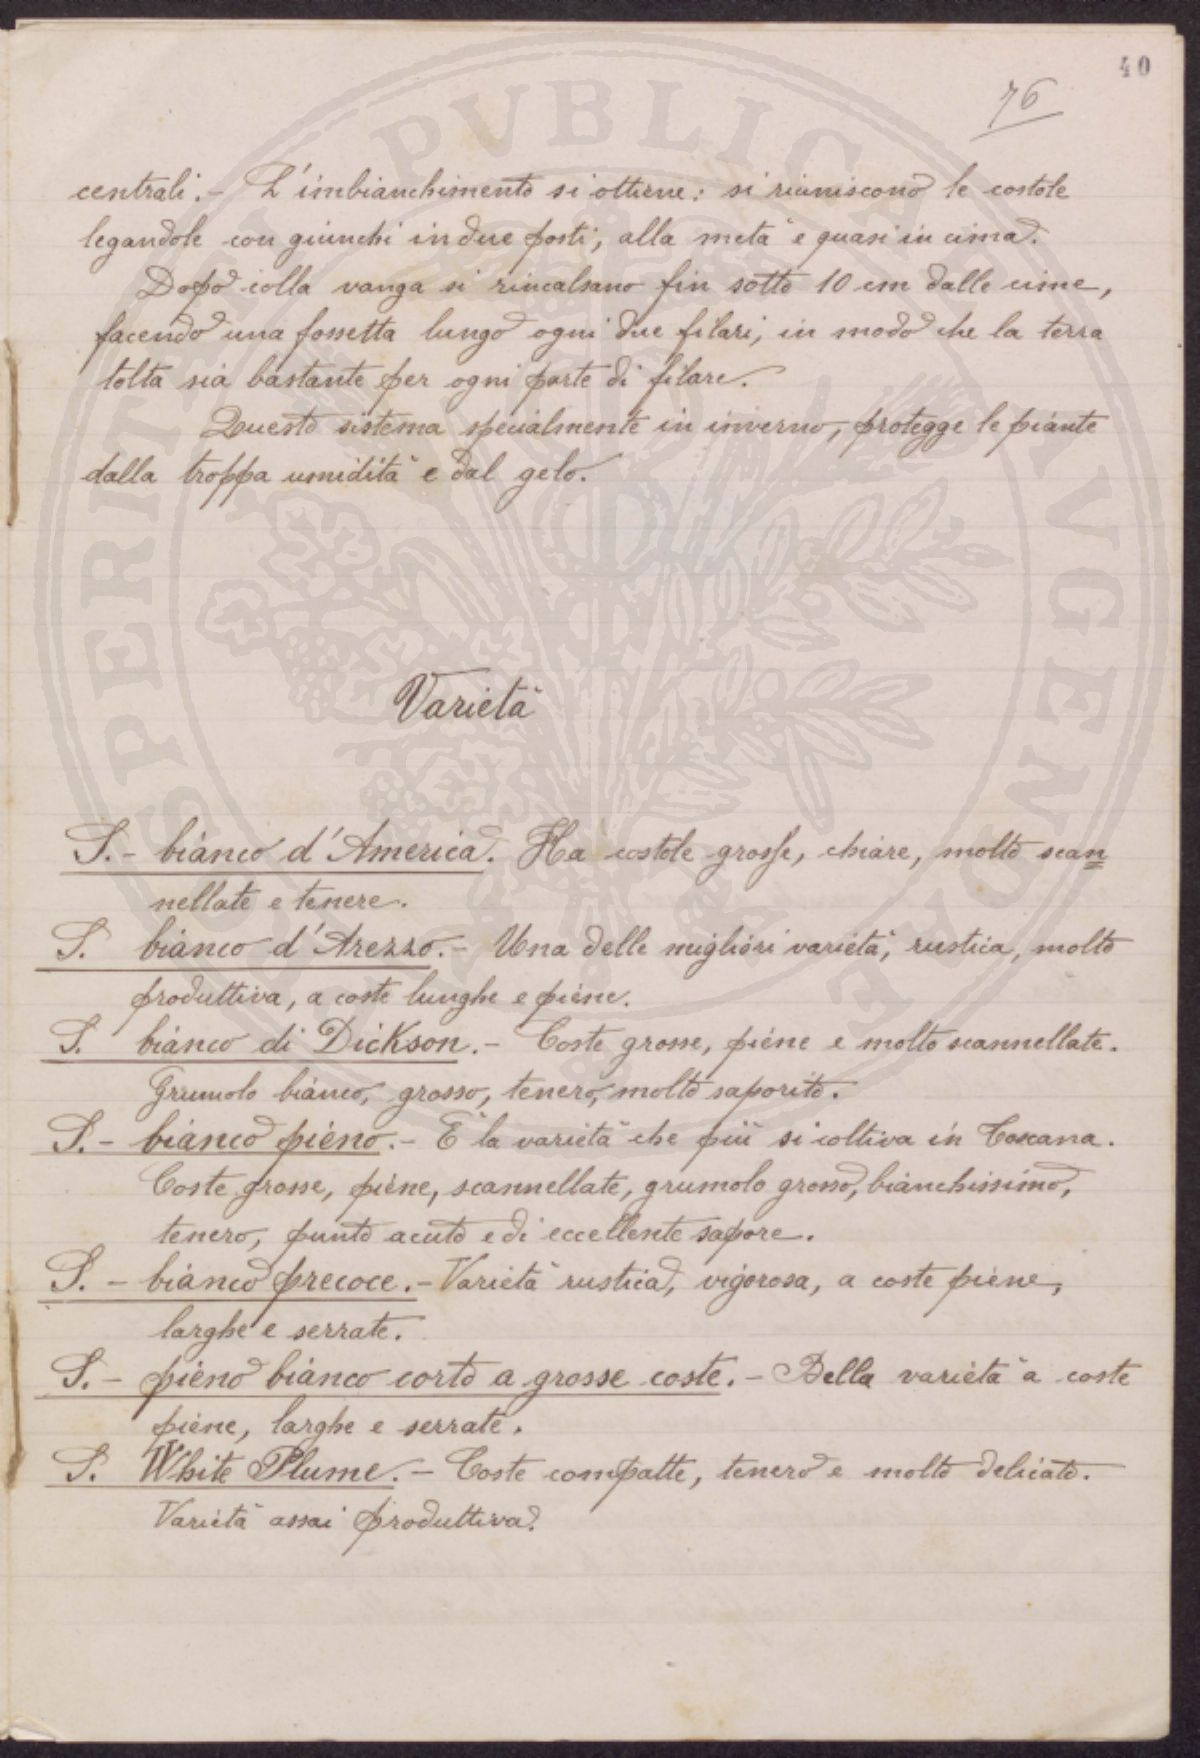 40
76
centrali. - L'imbianchimento si ottiene: si riuniscono le costole
legandole con giunchi in due posti, alla metà e quasi in cima.
Dopo colla vanga si rincalsano fin sotto 10 cm dalle cime,
facendo una fossetta lungo ogni due filari, in modo che la terra
tolta sia bastante per ogni parte di filare.
Questo sistema specialmente in inverno, protegge le piante
dalla troppa umidità e dal gelo.
Varietà
S. - bianco d'America. Ha costole grosse, chiare, molto scan=
nellate e tenere.
S. bianco d'Arezzo. - Una delle migliori varietà, rustica, molto
produttiva, a coste lunghe e piene.
S. bianco di Dickson. - Coste grosse, piene e molto scannellate.
Grumolo bianco, grosso, tenero, molto saporito.
S. - bianco pieno. - È la varietà che più si coltiva in Toscana.
Coste grosse, piene, scannellate, grumolo grosso, bianchissimo,
tenero, punto acuto e di eccellente sapore.
S. - bianco precoce. - Varietà rustica, vigorosa, a coste piene,
larghe e serrate.
S. - pieno bianco corto a grosse coste. - Bella varietà a coste
piene, larghe e serrate.
S. White Plume. - Coste compatte, tenero e molto delicato.
Varietà assai produttiva.
PVBLICAE AVGENDAE PROSPERITATI